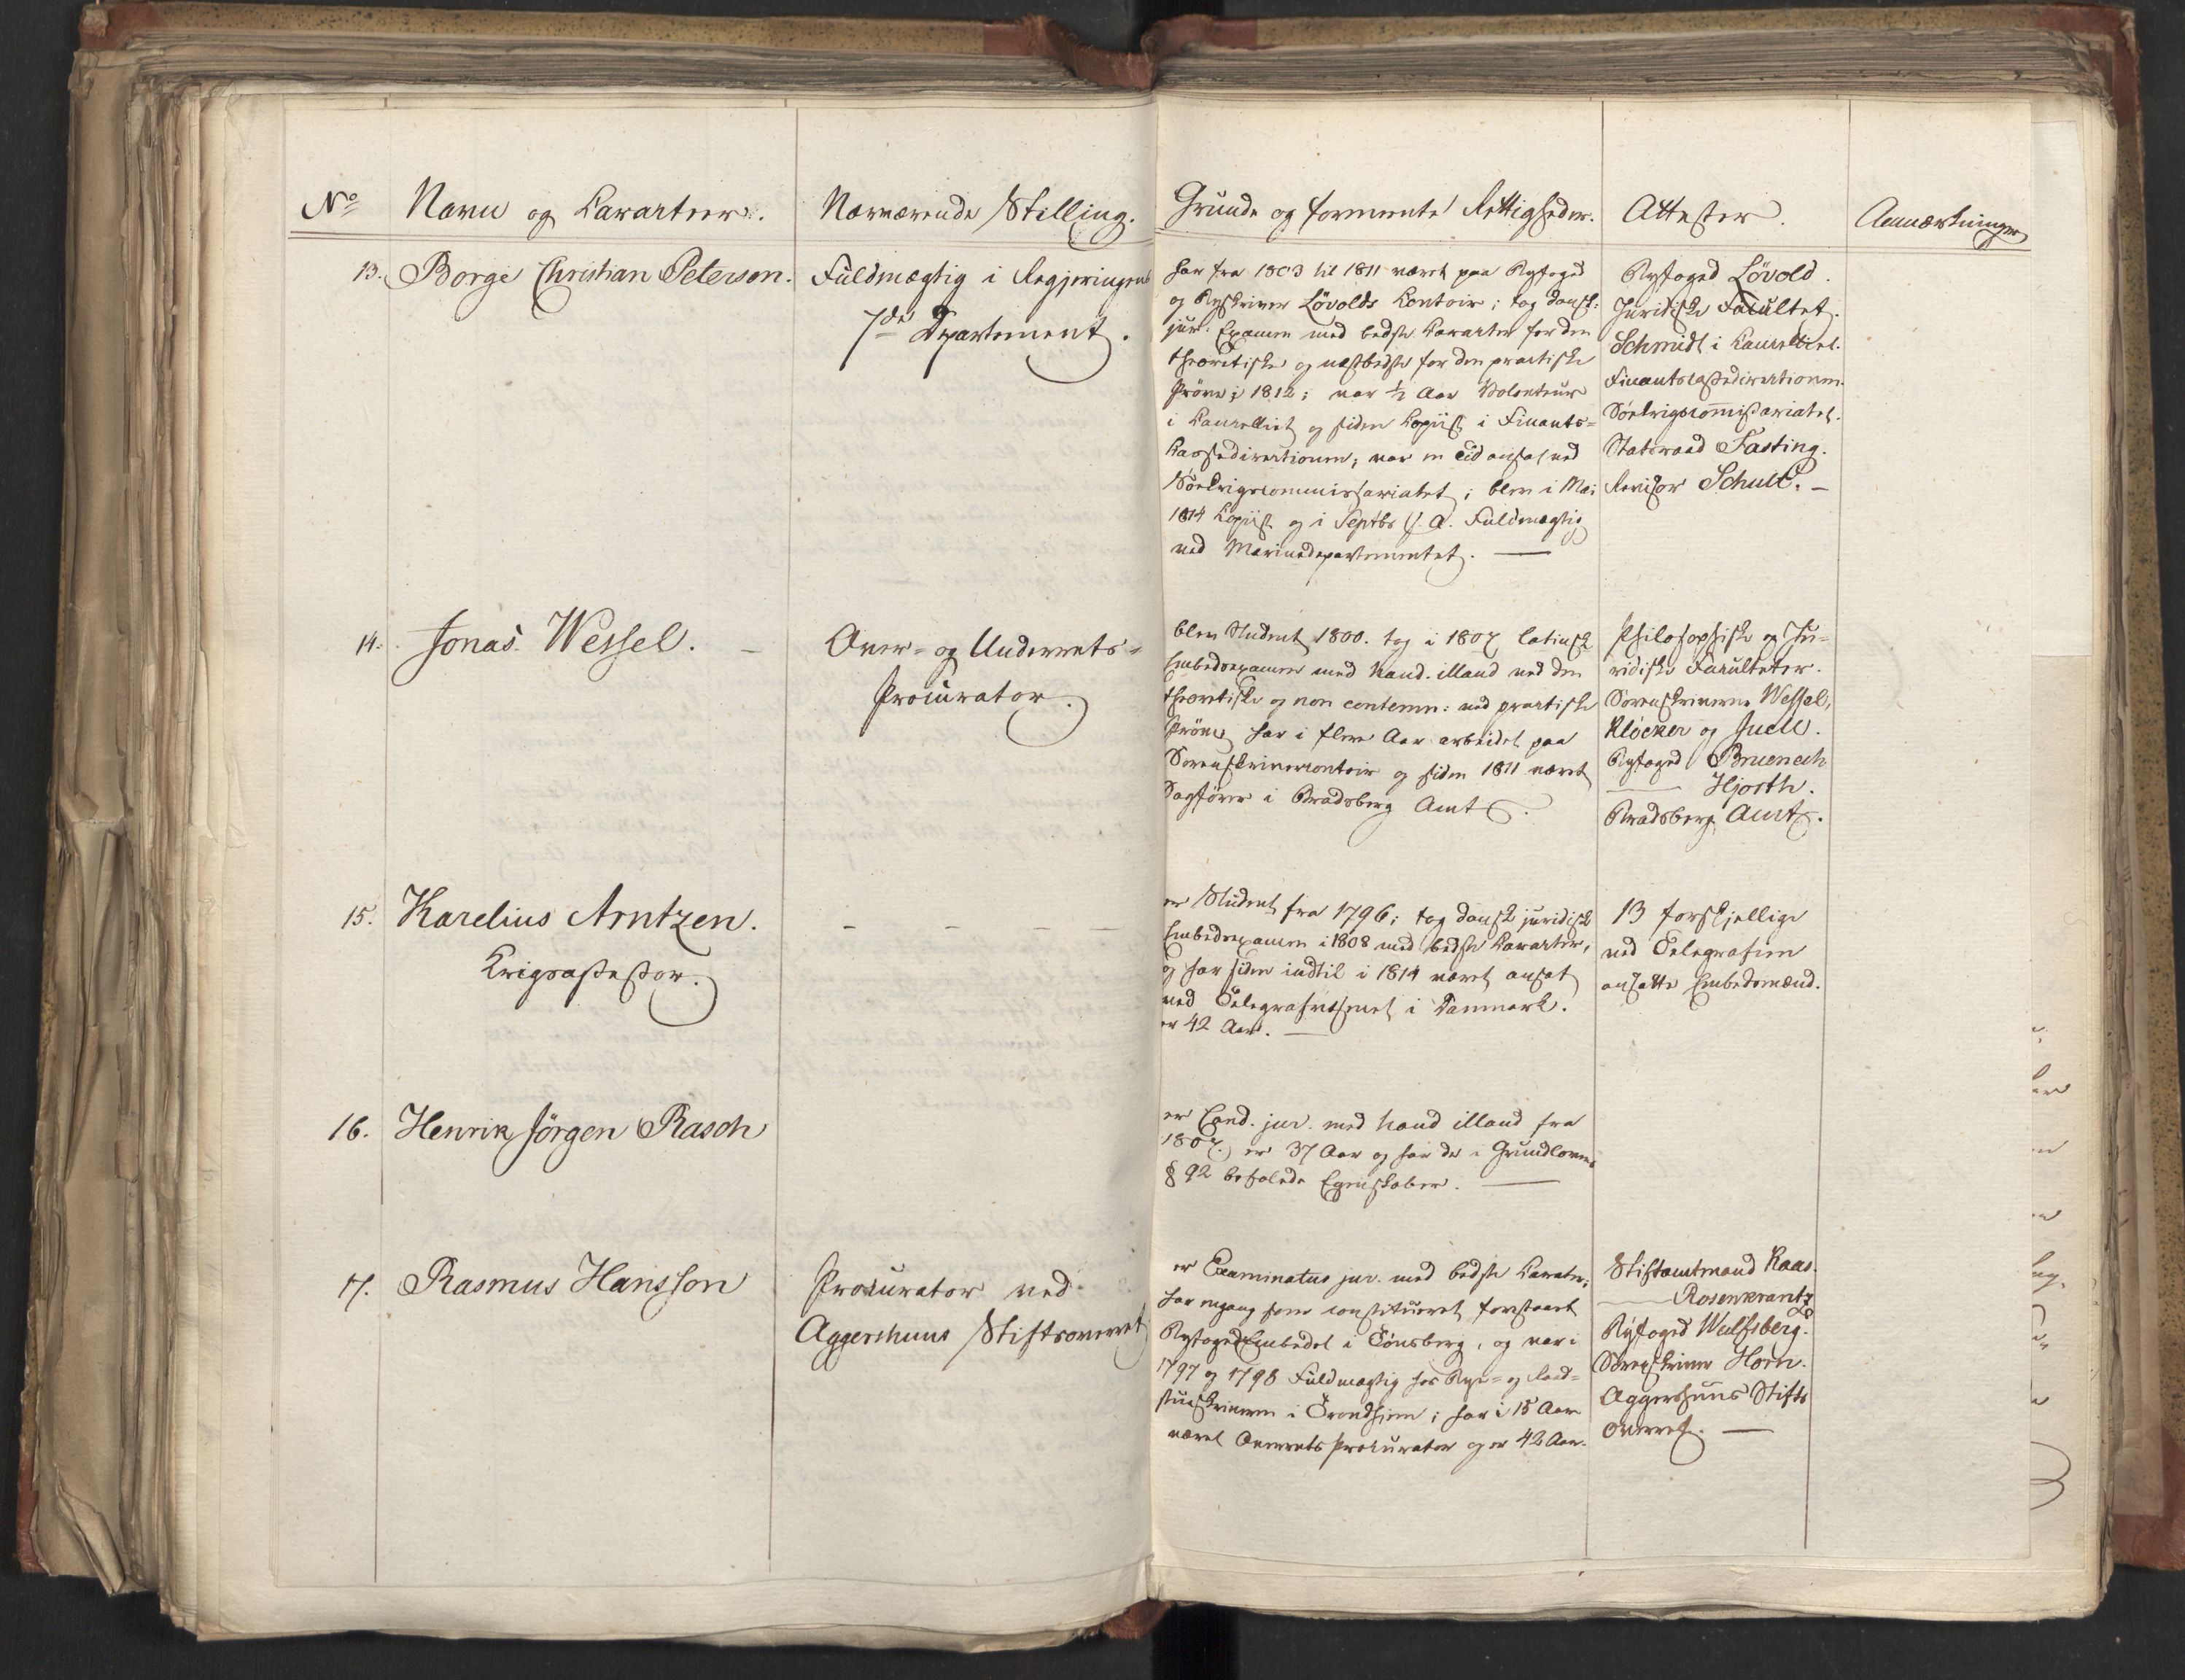 No
Navn og Caracteer.
Nærværende Stilling.
Grunde og formente Rettigheder.
Attester.
Anmærkninger
13. Borge Christian Peterson.
Fuldmægtig i Regjeringens
7de Departement.
har fra 1803 til 1811 været paa Byfoged
og Byskriver Lövolds Contoir; tog dansk
jur. Examen med bedste Caracter for den
theoretiske og næstbedste for den practiske
Pröve i 1812; var ½ Aar Volonteur
i Cancelliet og siden Copiist i Finants-
Cassedirectionen; var en Tid ansat ved
Söekrigscommissariatet; blev i Mai
1814 Copiist og i Septbr s. A. Fuldmægtig
ved Marinedepartementet. —
Byfoged Lövold.
Juridiske Facultet.
Schmidt i Cancelliet.
Finantscassedirectionen.
Söekrigscommissariatet.
Statsraad Fasting.
Revisor Schult. —
14. Jonas Wessel. —
Over- og Underrets-
Procurator.
blev Student 1800. tog i 1807 latinsk
Embedsexamen med haud. illaud ved den
theoretiske og non contemn: ved practiske
Pröve, har i flere Aar arbeidet paa
Sorenskrivercontoir og siden 1811 været
Sagförer i Bradsberg Amt.
Philosophiske og Ju-
ridiske Faculteter.
Sorenskriverne Wessel,
Klöcker og Juell.
Byfoged Bruenech
— Hjorth.
Bradsberg Amt.
15. Karelius Arntzen.
Krigsassessor.
- - - -
er Student fra 1796; tog dansk juridisk
Embedsexamen i 1808 med bedste Caracter,
og har siden indtil i 1814 været ansat
ved Telegrafvæsenet i Danmark.
er 42 Aar. —
13 forskjellige
ved Telegrafien
ansatte Embedsmænd.
16. Henrik Jörgen Rasch
er Cand. jur. med haud illaud fra
1807, er 37 Aar og har de i Grundlovens
§ 92 befalede Egenskaber. —
17. Rasmus Hansson
Procurator ved
Aggershuus Stiftsoverret
er Examinatus jur. med bedste Caracter;
har engang som constitueret forestaaet
Byfoged Embedet i Tönsberg, og var i
1797 og 1798 Fuldmægtig hos Bye- og Raad-
stueskriveren i Trondhjem; har i 15 Aar
været Overrets Procurator og er 42 Aar.
Stiftamtmand Kaas.
— Rosenkrantz
Byfoged Wulfsberg.
Sorenskriver Horn.
Aggershuus Stifts
Overret. —